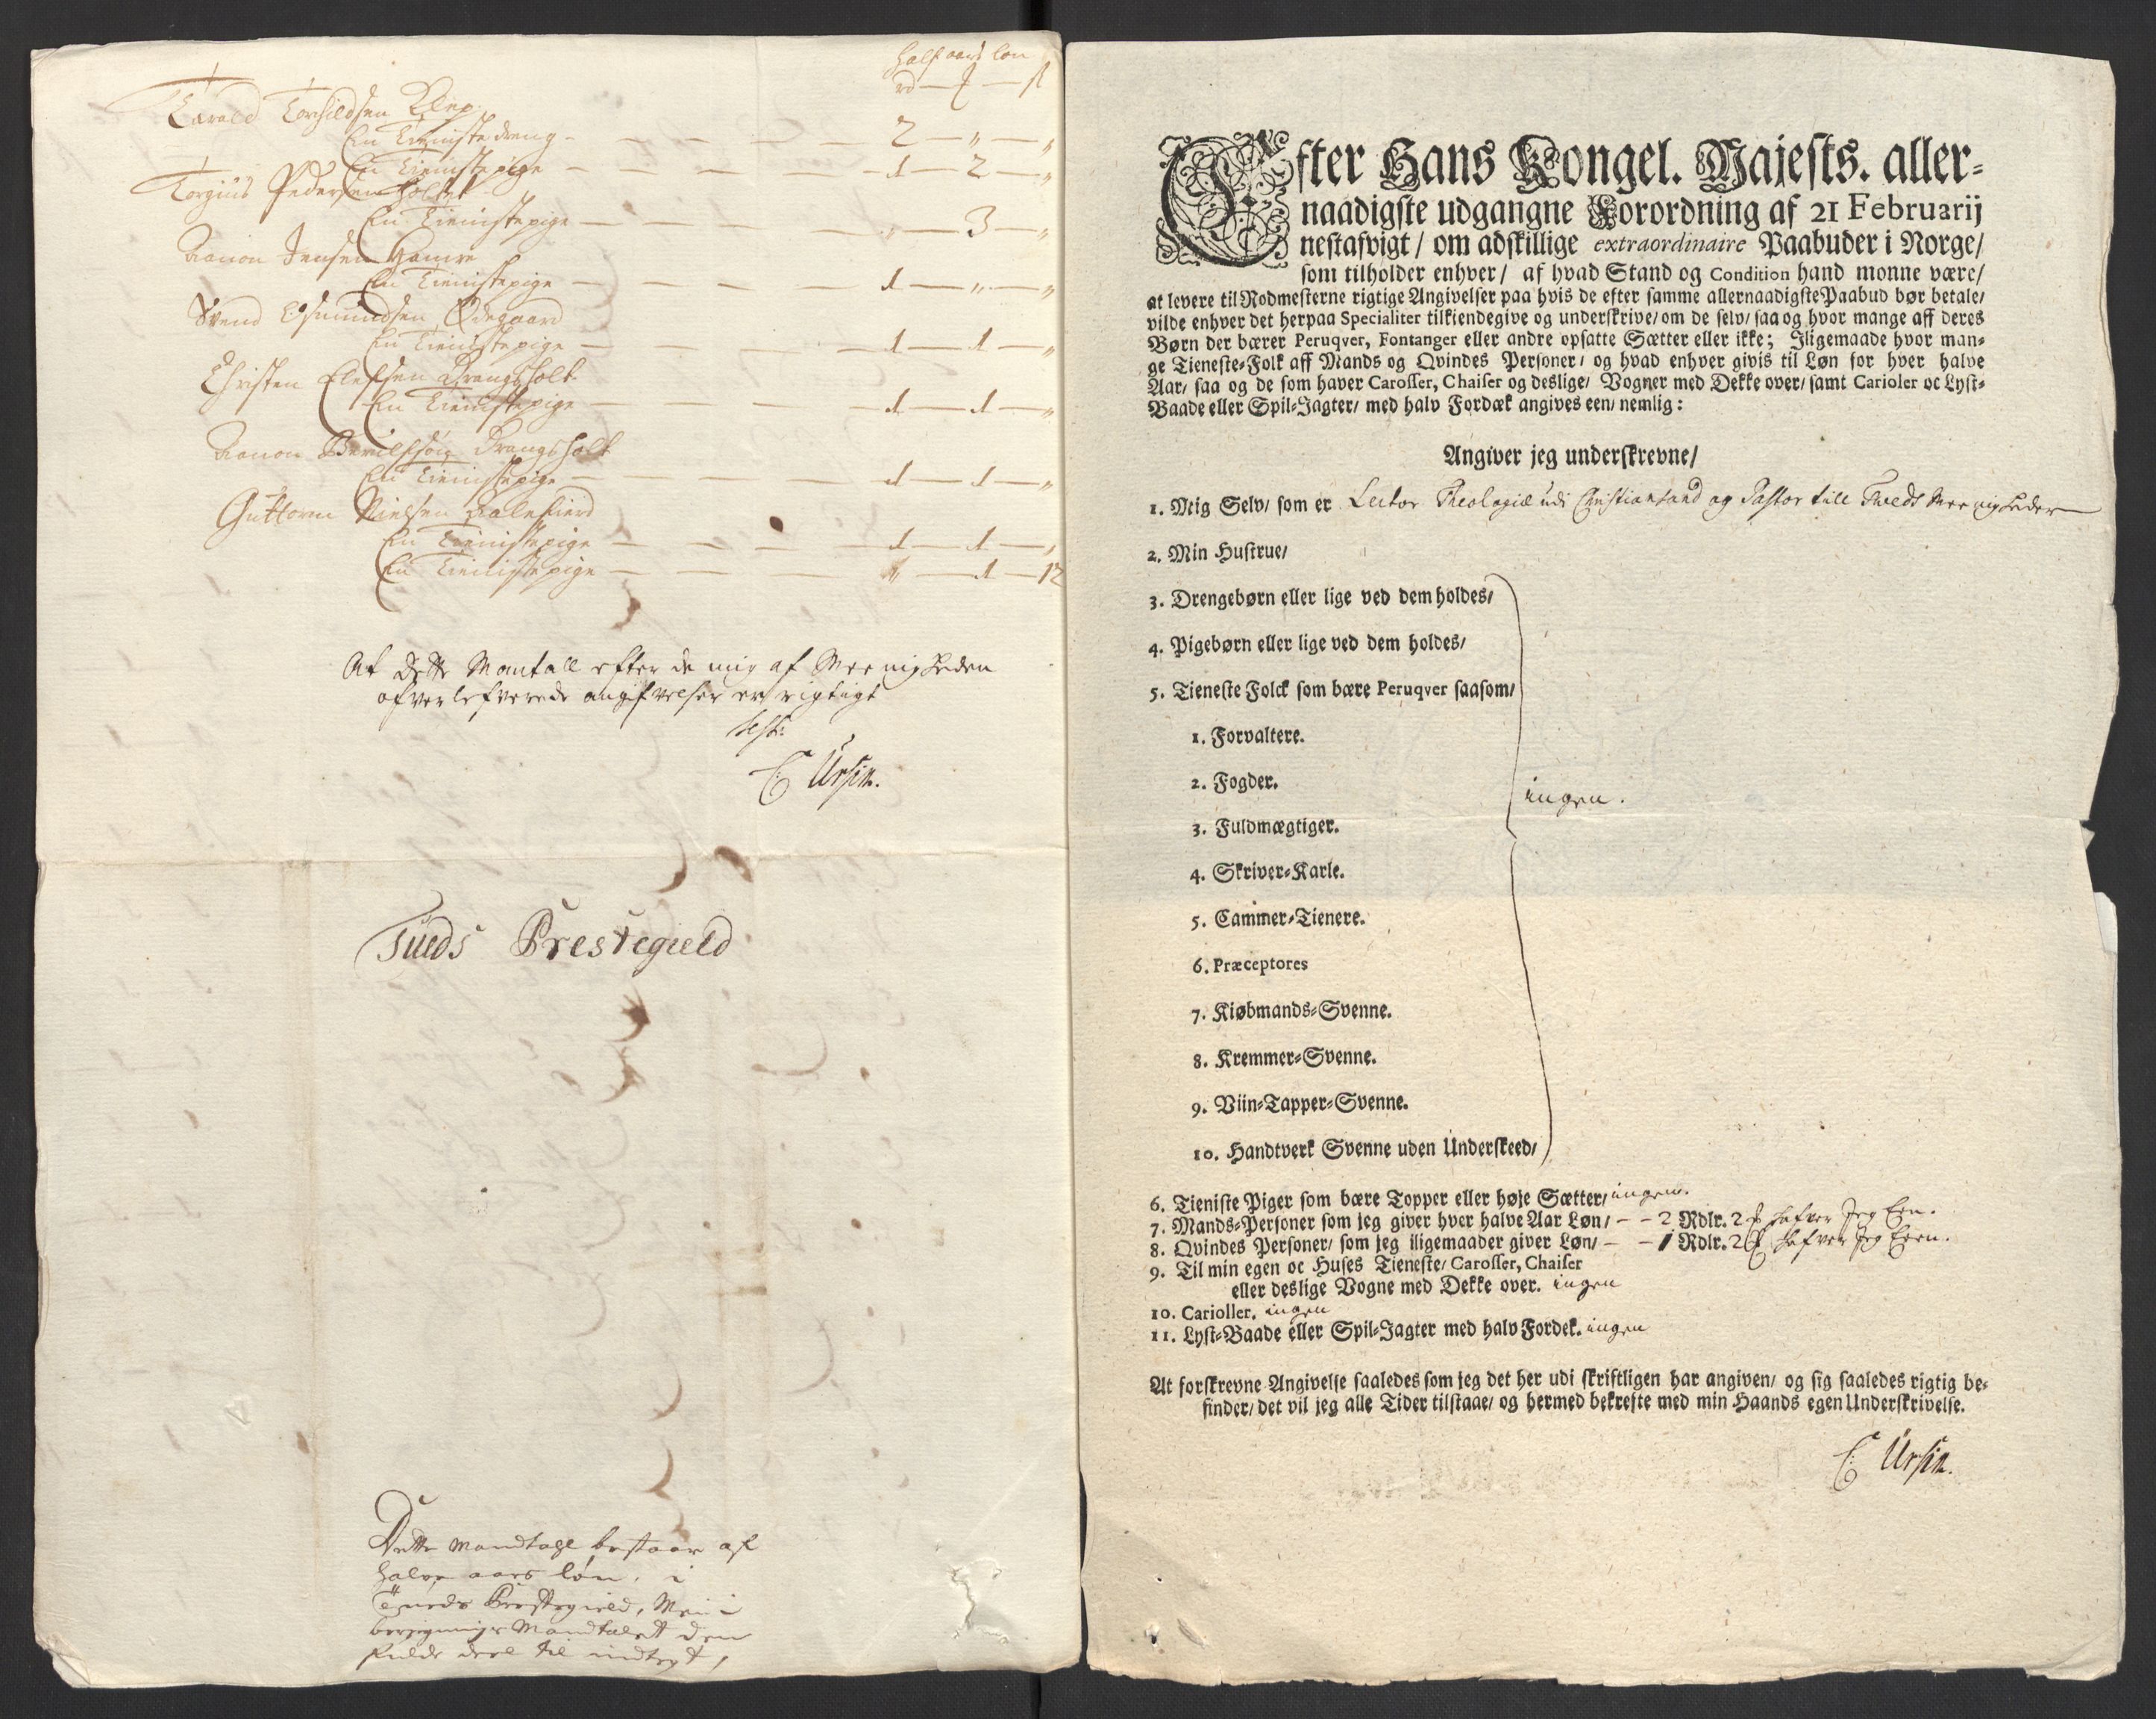 half aars løn
rd — ¢ — ß
Tarald Torchildsen
En Tienistedreng — 2 — „ — „
En Tienistepige — 1 — 2 — „
Torgius Pedersen Holte
En Tienistepige — „ — 3 — „
Aanon Jensen Hamre
En Tienistepige — 1 — „ — „
Svend Osmundsen Ødegaard
En Tienistepige — 1 — 1 — „
Christen Elefsen Drangsholt
En Tienistepige — 1 — 1 — „
Aanon Drangsholt
En Tienistepige — 1 — 1 — „
Guttorm Nielsen
En Tienistepige — 1 — 1 — „
En Tienistepige — „ — 1 — 12
At dette Mantall efter de mig af Meenigheden
ofverlefverede angifvelser er rigtigt
test:
C: Ursin.
Tueds Prestegield
Dette Mandtall bestaar af
halve aars løn, i
Tueds Prestegield, Men i
beregnings Mandtalet den
fulde deel til indtegt,
Efter Hans Kongel. Majests. aller-
naadigste udgangne Forordning af 21 Februarij
nestafvigt / om adskillige extraordinaire Paabuder i Norge/
som tilholder enhver/ af hvad Stand og Condition hand monne være/
at levere til Rodmesterne rigtige Angivelser paa hvis de efter samme allernaadigste Paabud bør betale/
vilde enhver det herpaa Specialiter tilkiendegive og underskrive/ om de selv/ saa og hvor mange aff deres
Børn der bærer Peruqver, Fontanger eller andre opsatte Sætter eller ikke; Iligemaade hvor man-
ge Tieneste-Folk aff Mands og Qvindes Personer/ og hvad enhver givis til Løn for hver halve
Aar/ saa og de som haver Carosser, Chaiser og deslige/ Vogner med Dekke over/ samt Carioler oc Lyst-
Baade eller Spil-Jagter/ med halv Fordæk angives een/ nemlig:
Angiver jeg underskrevne/
1. Mig Selv/ som er Lector Theologiæ udi Christiansand og Pastor till Tveds Meenigheder
2. Min Hustrue/
3. Drengebørn eller lige ved dem holdes/
4. Pigebørn eller lige ved dem holdes/
5. Tieneste Folck som bære Peruqver saasom/
1. Forvaltere.
2. Fogder.
ingen.
3. Fuldmægtiger.
4. Skriver-Karle.
5. Cammer-Tienere.
6. Præceptores
7. Kiøbmands-Svenne.
8. Kremmer-Svenne.
9. Viin-Tapper-Svenne.
10. Handtverk Svenne uden Underskeed/
6. Tieniste Piger som bære Topper eller høje Sætter/ ingen.
7. Mands-Personer som jeg giver hver halve Aar Løn/ - - 2 Rdlr. 2 ¢ hafver Jeg Een.
8. Qvindes Personer/ som jeg iligemaader giver Løn/ - - 1 Rdlr. 2 ¢ hafver Jeg Een.
9. Til min egen oc Huses Tieneste/ Carosser, Chaiser
eller deslige Vogne med Dekke over. ingen
10. Carioller. ingen
11. Lyst-Baade eller Spil-Jagter med halv Fordek. ingen
At forskrevne Angivelse saaledes som jeg det her udi skriftligen har angiven/ og sig saaledes rigtig be-
finder/ det vil jeg alle Tider tilstaae/ og hermed bekrefte med min Haands egen Underskrivelse.
C: Ursin.